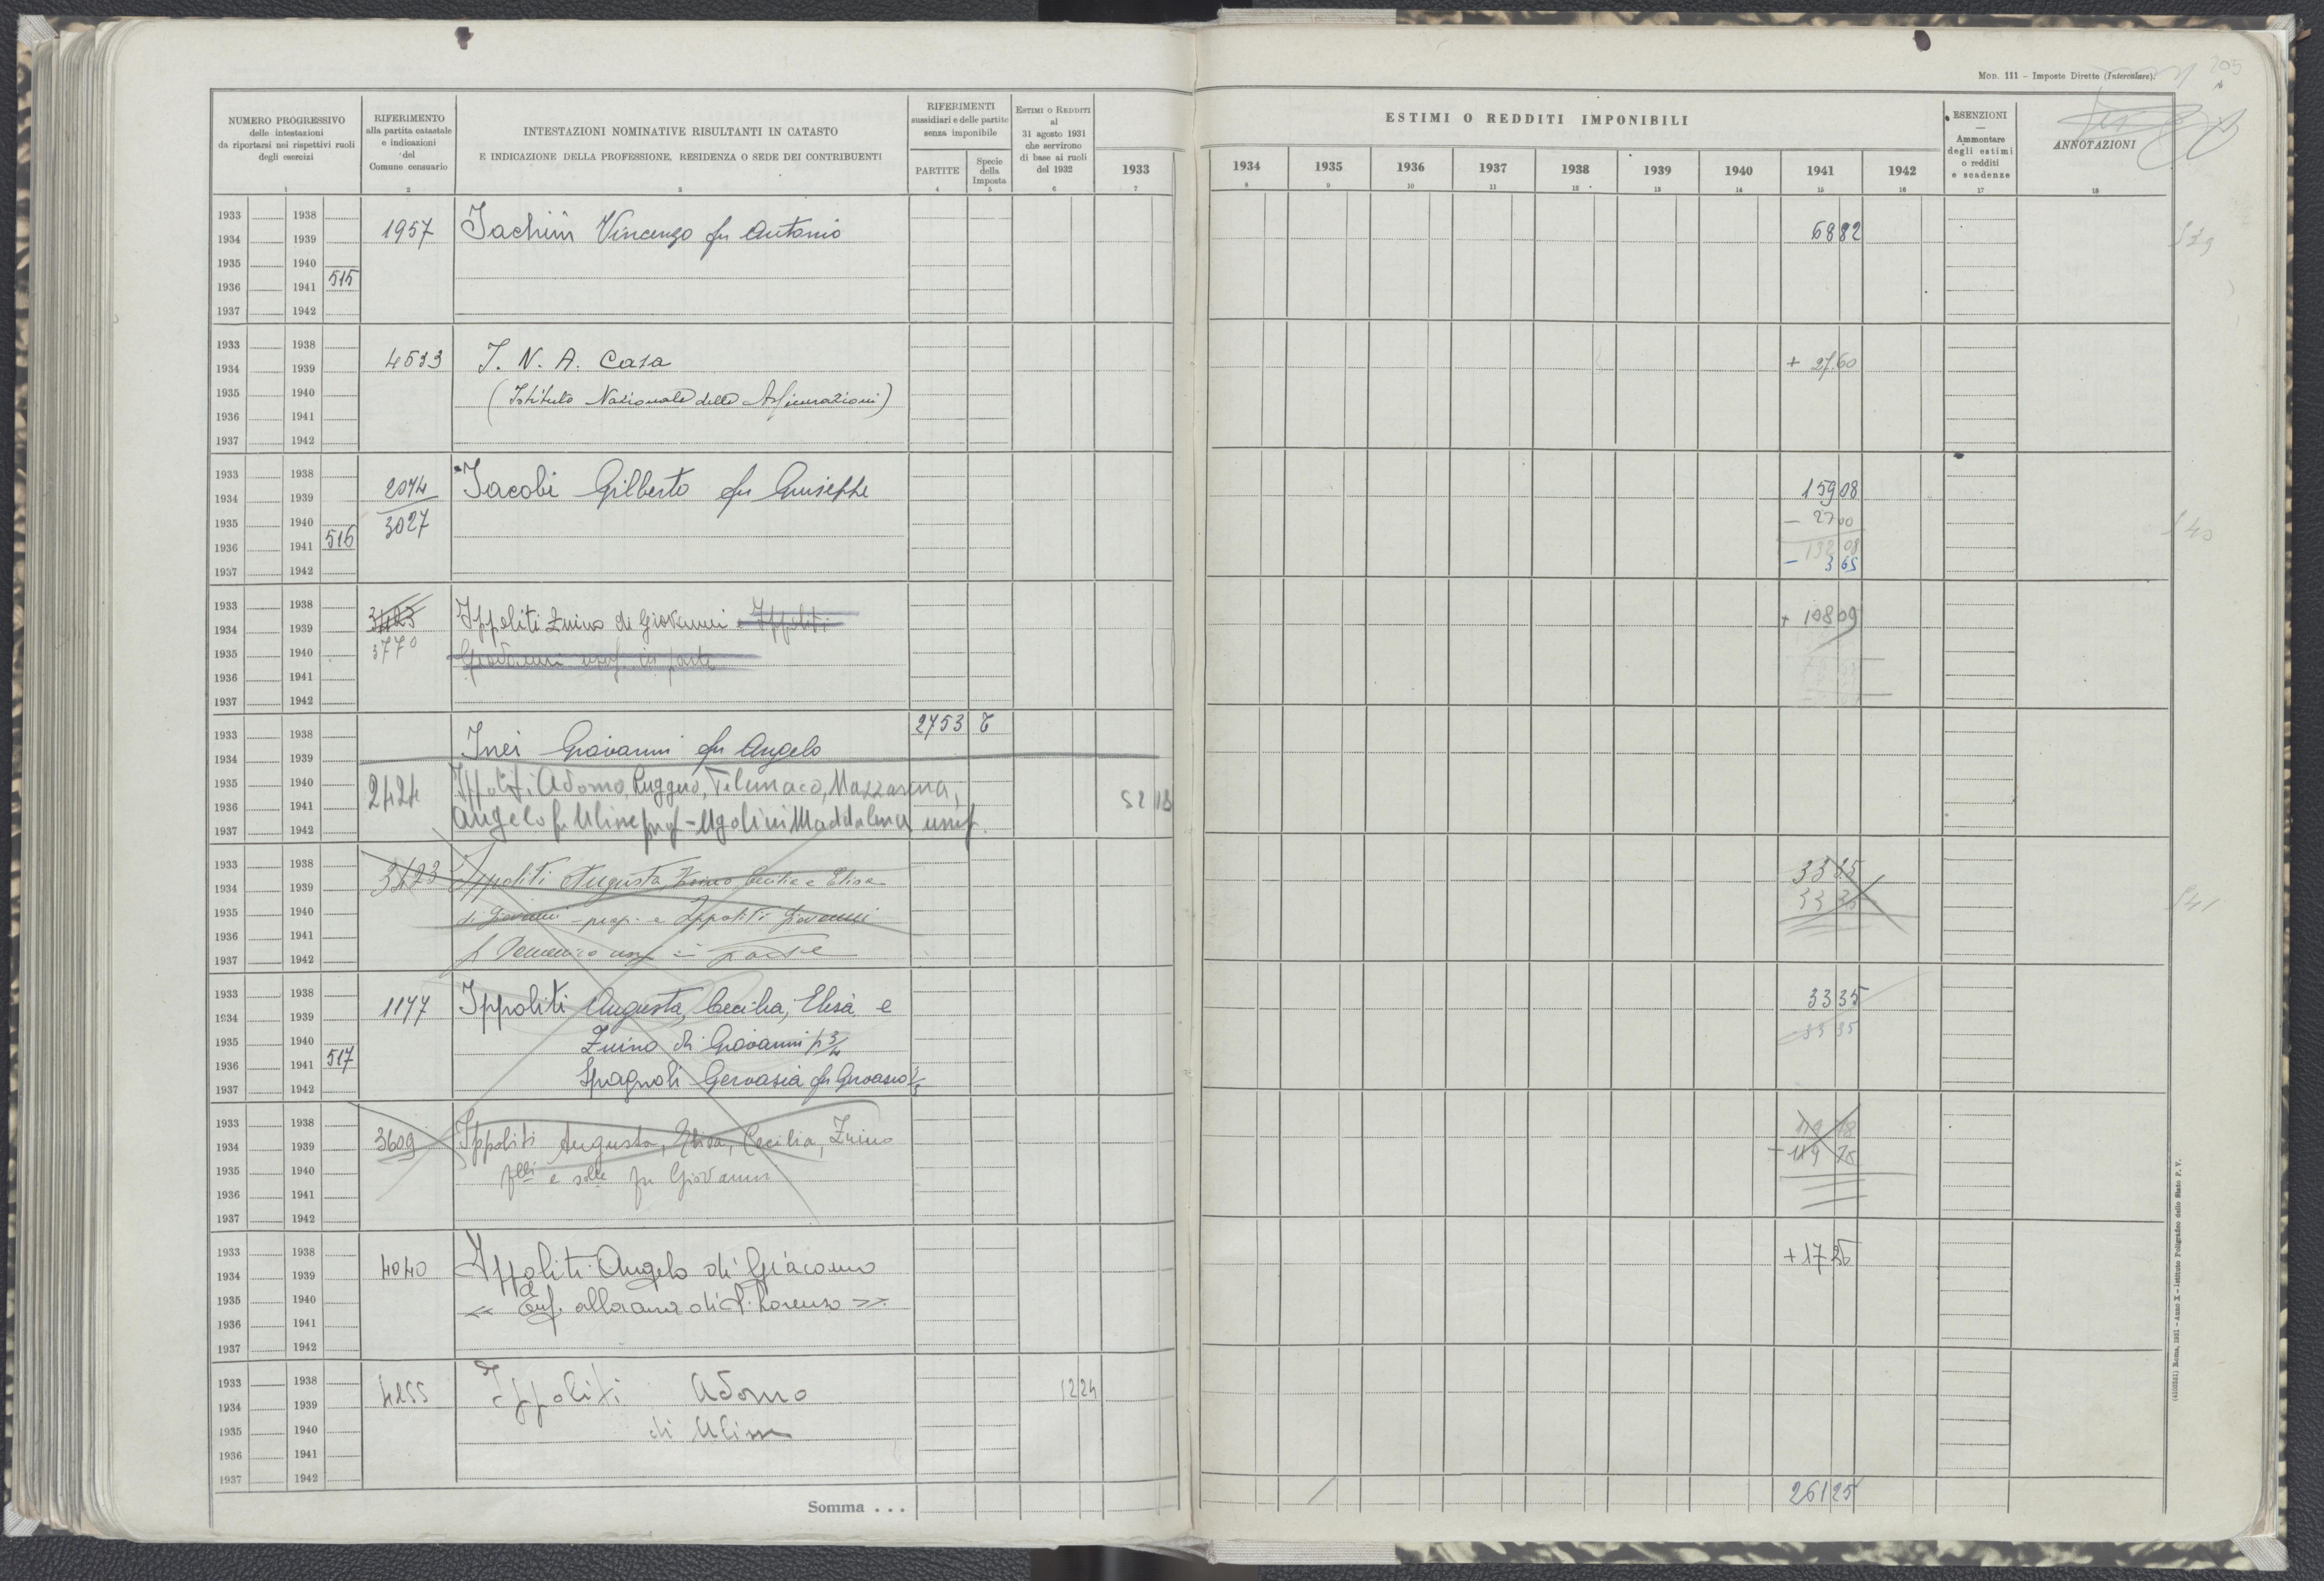 Mod. 111 – Imposte Dirette (Intercalare).
205
NUMERO PROGRESSIVO delle intestazioni da riportarsi nei rispettivi ruoli degli esercizi
RIFERIMENTO alla partita catastale e indicazioni del Comune censuario
INTESTAZIONI NOMINATIVE RISULTANTI IN CATASTO
E INDICAZIONE DELLA PROFESSIONE, RESIDENZA O SEDE DEI CONTRIBUENTI
RIFERIMENTI sussidiari e delle partite senza imponibile
PARTITE
Specie della Imposta
ESTIMI O REDDITI al 31 agosto 1931 che servirono di base ai ruoli del 1932
ESTIMI O REDDITI IMPONIBILI
1933 1934 1935 1936 1937 1938 1939 1940 1941 1942
ESENZIONI — Ammontare degli estimi o redditi e scadenze
ANNOTAZIONI
1 2 3 4 5 6 7 8 9 10 11 12 13 14 15 16 17 18
1933 1938
1934 1939 1957 Iachini Vincenzo fu Antonio 6882 539
1935 1940
1936 1941 515
1937 1942
1933 1938
1934 1939 4533 I. N. A. Casa + 27.60
1935 1940 (Istituto Nazionale delle Assicurazioni)
1936 1941
1937 1942
1933 1938
1934 1939 2074 Iacobi Gilberto fu Giuseppe 15908
1935 1940 3027 – 2700 540
1936 1941 516 13208
1937 1942 – 365
1933 1938
1934 1939 3423 Ippoliti Zuino di Giovanni Ippoliti + 10809
1935 1940 3770 Giovanni usuf. in parte
1936 1941
1937 1942
1933 1938 2753 T
1934 1939 Inei Giovanni fu Angelo
1935 1940 Ippoliti Adorno, Ruggero, Telemaco, Mazzarena,
1936 1941 2424 52 13
1937 1942 Angelo fu Ulisse prop - Ugolini Maddalena usuf.
1933 1938 3335
1934 1939 3423 Ippoliti Augusta, Zuino Cecilia e Elisa 3335 541
1935 1940 di Giovanni - prop. e Ippoliti Giovanni
1936 1941
1937 1942 f Domenico usuf in parte
1933 1938
1934 1939 1177 Ippoliti Augusta, Cecilia, Elisa e 3335
1935 1940 Zuino di Giovanni p 3/4 3335
1936 1941 517
1937 1942 Spagnoli Gervasia fu Gervasio
1933 1938
1934 1939 3609 Ippoliti Augusta, Elisa, Cecilia, Zuino
1935 1940 flli e slle fu Giovanni
1936 1941
1937 1942
1933 1938
1934 1939 4040 Ippoliti Angelo di Giacomo + 1725
1935 1940 « Enf. alloranz di S. Lorenzo »
1936 1941
1937 1942
1933 1938
1934 1939 4255 Ippoliti Adorno 12 24
1935 1940 di Ulisse
1936 1941
1937 1942
Somma . . . 26125
(4103521) Roma, 1931 – Anno X – Istituto Poligrafico dello Stato P. V.